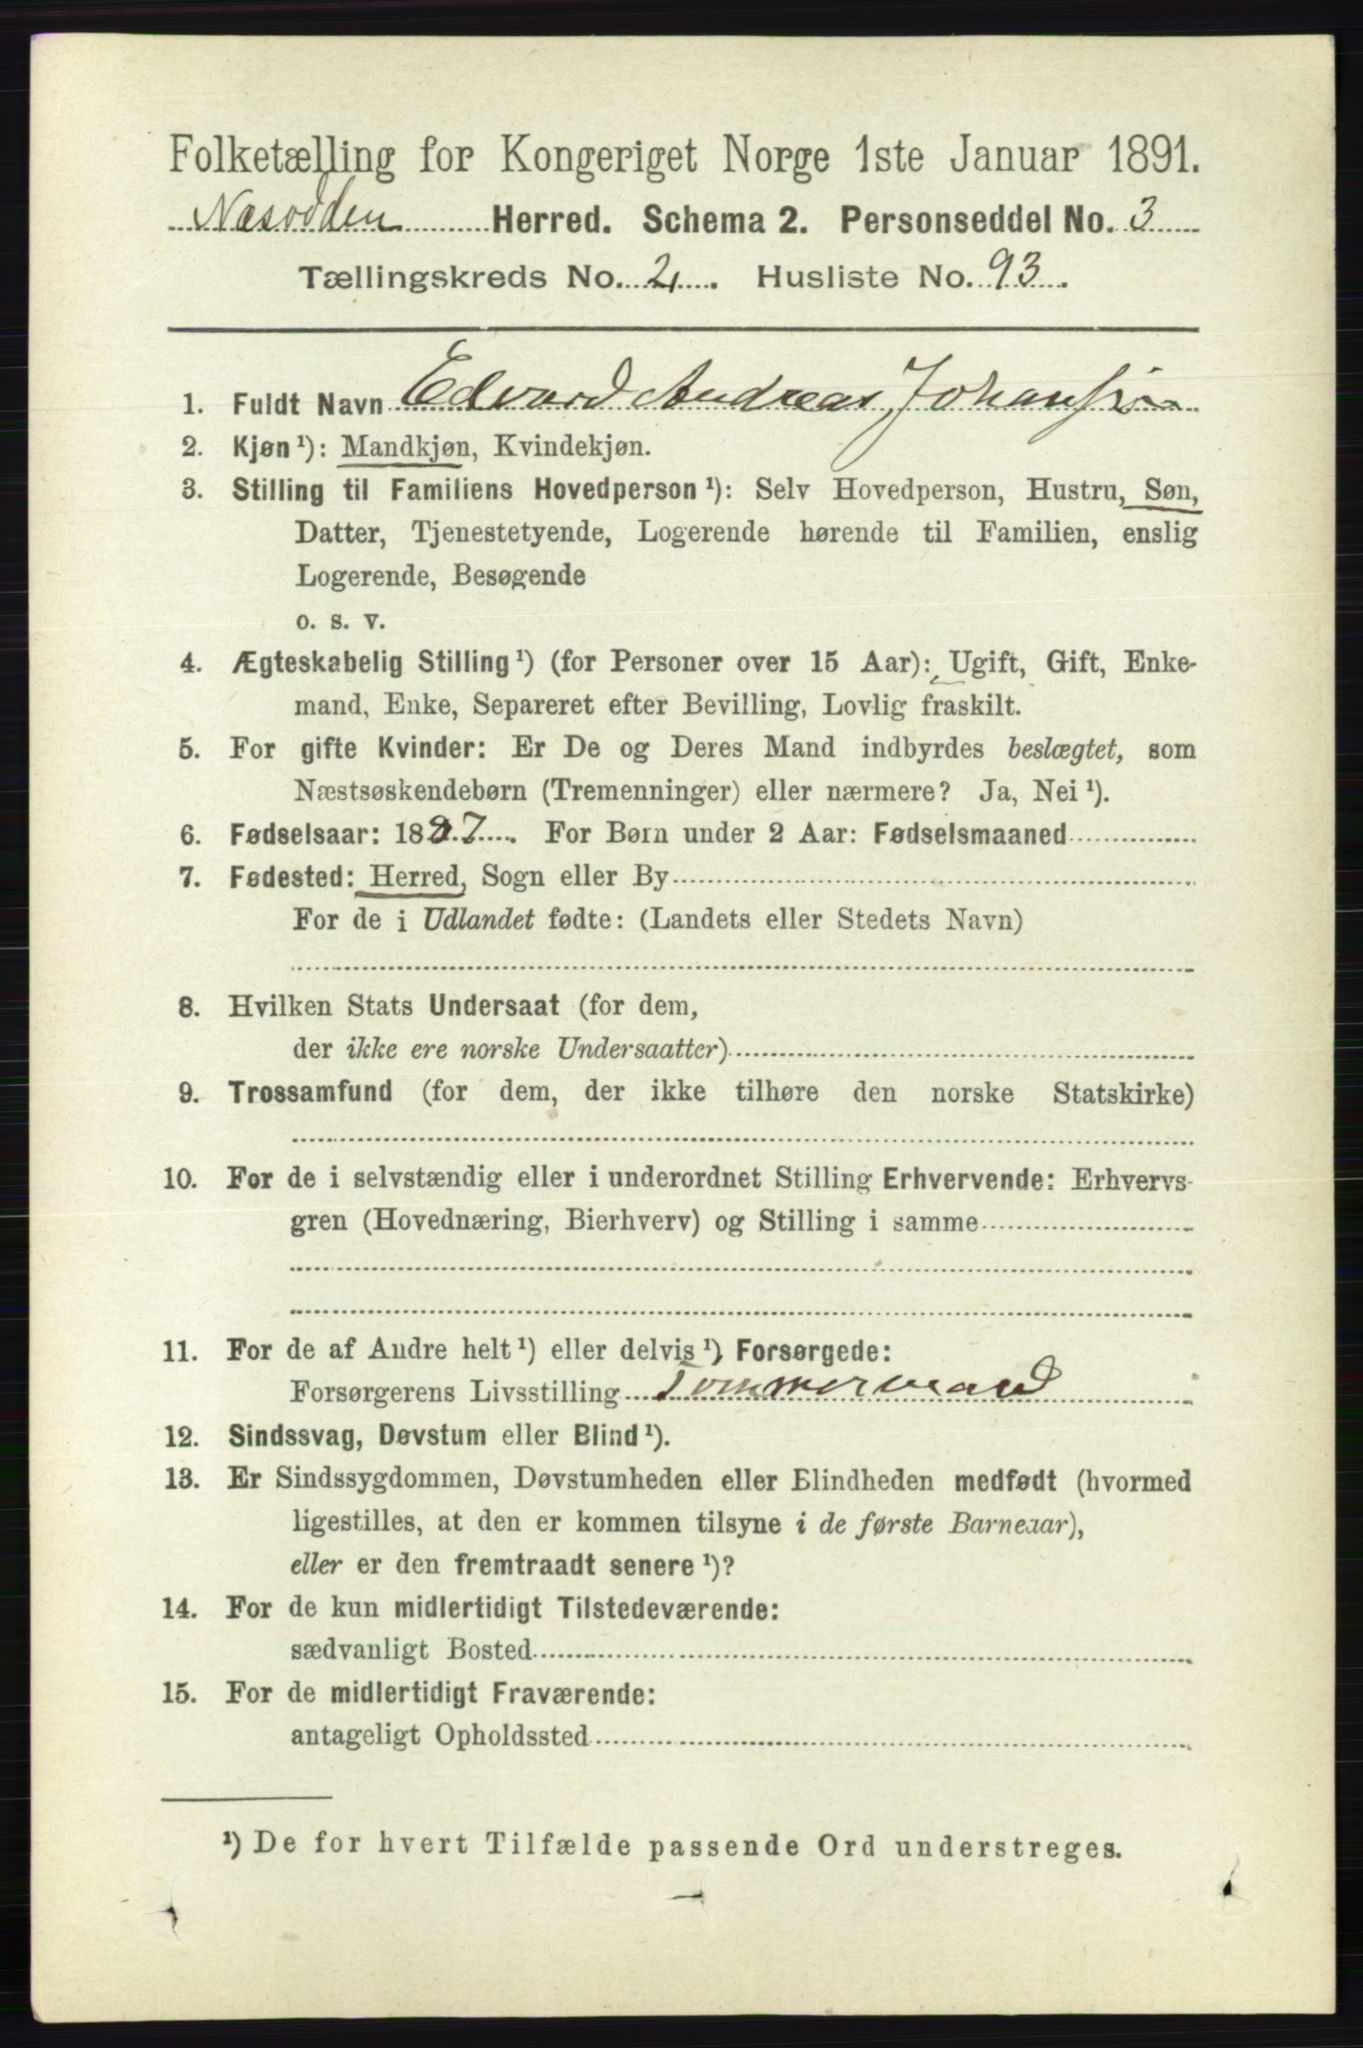 Folketælling for Kongeriget Norge 1ste Januar 1891.
Næsodden Herred. Schema 2. Personseddel No. 3
Tællingskreds No. 2. Husliste No. 93.
1. Fuldt Navn Edvard Andreas Johansen
2. Kjøn ¹): Mandkjøn, Kvindekjøn.
3. Stilling til Familiens Hovedperson ¹): Selv Hovedperson, Hustru, Søn,
Datter, Tjenestetyende, Logerende hørende til Familien, enslig
Logerende, Besøgende
o. s. v.
4. Ægteskabelig Stilling ¹) (for Personer over 15 Aar): Ugift, Gift, Enke-
mand, Enke, Separeret efter Bevilling, Lovlig fraskilt.
5. For gifte Kvinder: Er De og Deres Mand indbyrdes beslægtet, som
Næstsøskendebørn (Tremenninger) eller nærmere? Ja, Nei ¹).
6. Fødselsaar: 1887. For Børn under 2 Aar: Fødselsmaaned
7. Fødested: Herred, Sogn eller By
For de i Udlandet fødte: (Landets eller Stedets Navn)
8. Hvilken Stats Undersaat (for dem,
der ikke ere norske Undersaatter)
9. Trossamfund (for dem, der ikke tilhøre den norske Statskirke)
10. For de i selvstændig eller i underordnet Stilling Erhvervende: Erhvervs-
gren (Hovednæring, Bierhverv) og Stilling i samme
11. For de af Andre helt ¹) eller delvis ¹) Forsørgede:
Forsørgerens Livsstilling Tømmermand
12. Sindssvag, Døvstum eller Blind ¹).
13. Er Sindssygdommen, Døvstumheden eller Blindheden medfødt (hvormed
ligestilles, at den er kommen tilsyne i de første Barneaar),
eller er den fremtraadt senere ¹)?
14. For de kun midlertidigt Tilstedeværende:
sædvanligt Bosted
15. For de midlertidigt Fraværende:
antageligt Opholdssted
¹) De for hvert Tilfælde passende Ord understreges.